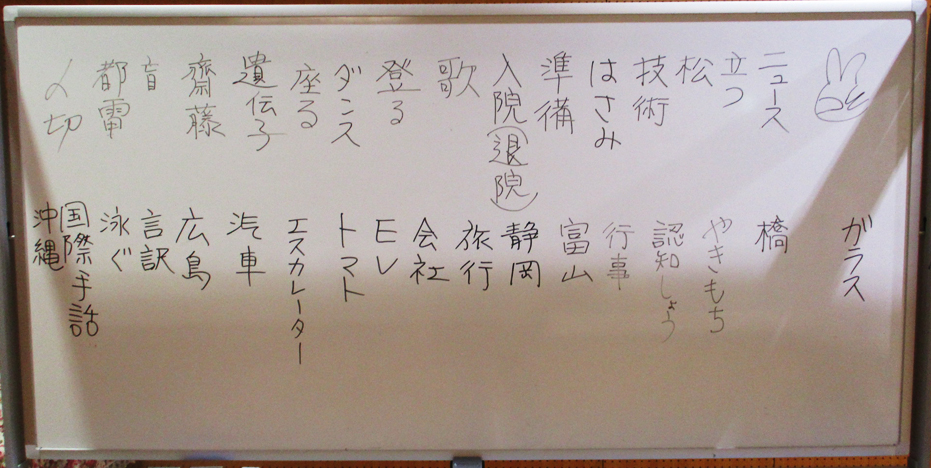 ニュース
立つ
松
技術
はさみ
準備
入院(退院)
歌
登る
ダンス
座る
遺伝子
齋藤
盲
都電
〆切
ガラス
橋
やきもち
認知しょう
行事
富山
静岡
旅行
会社
EV
トマト
エスカレーター
汽車
広島
言訳
泳ぐ
国際手話
沖縄